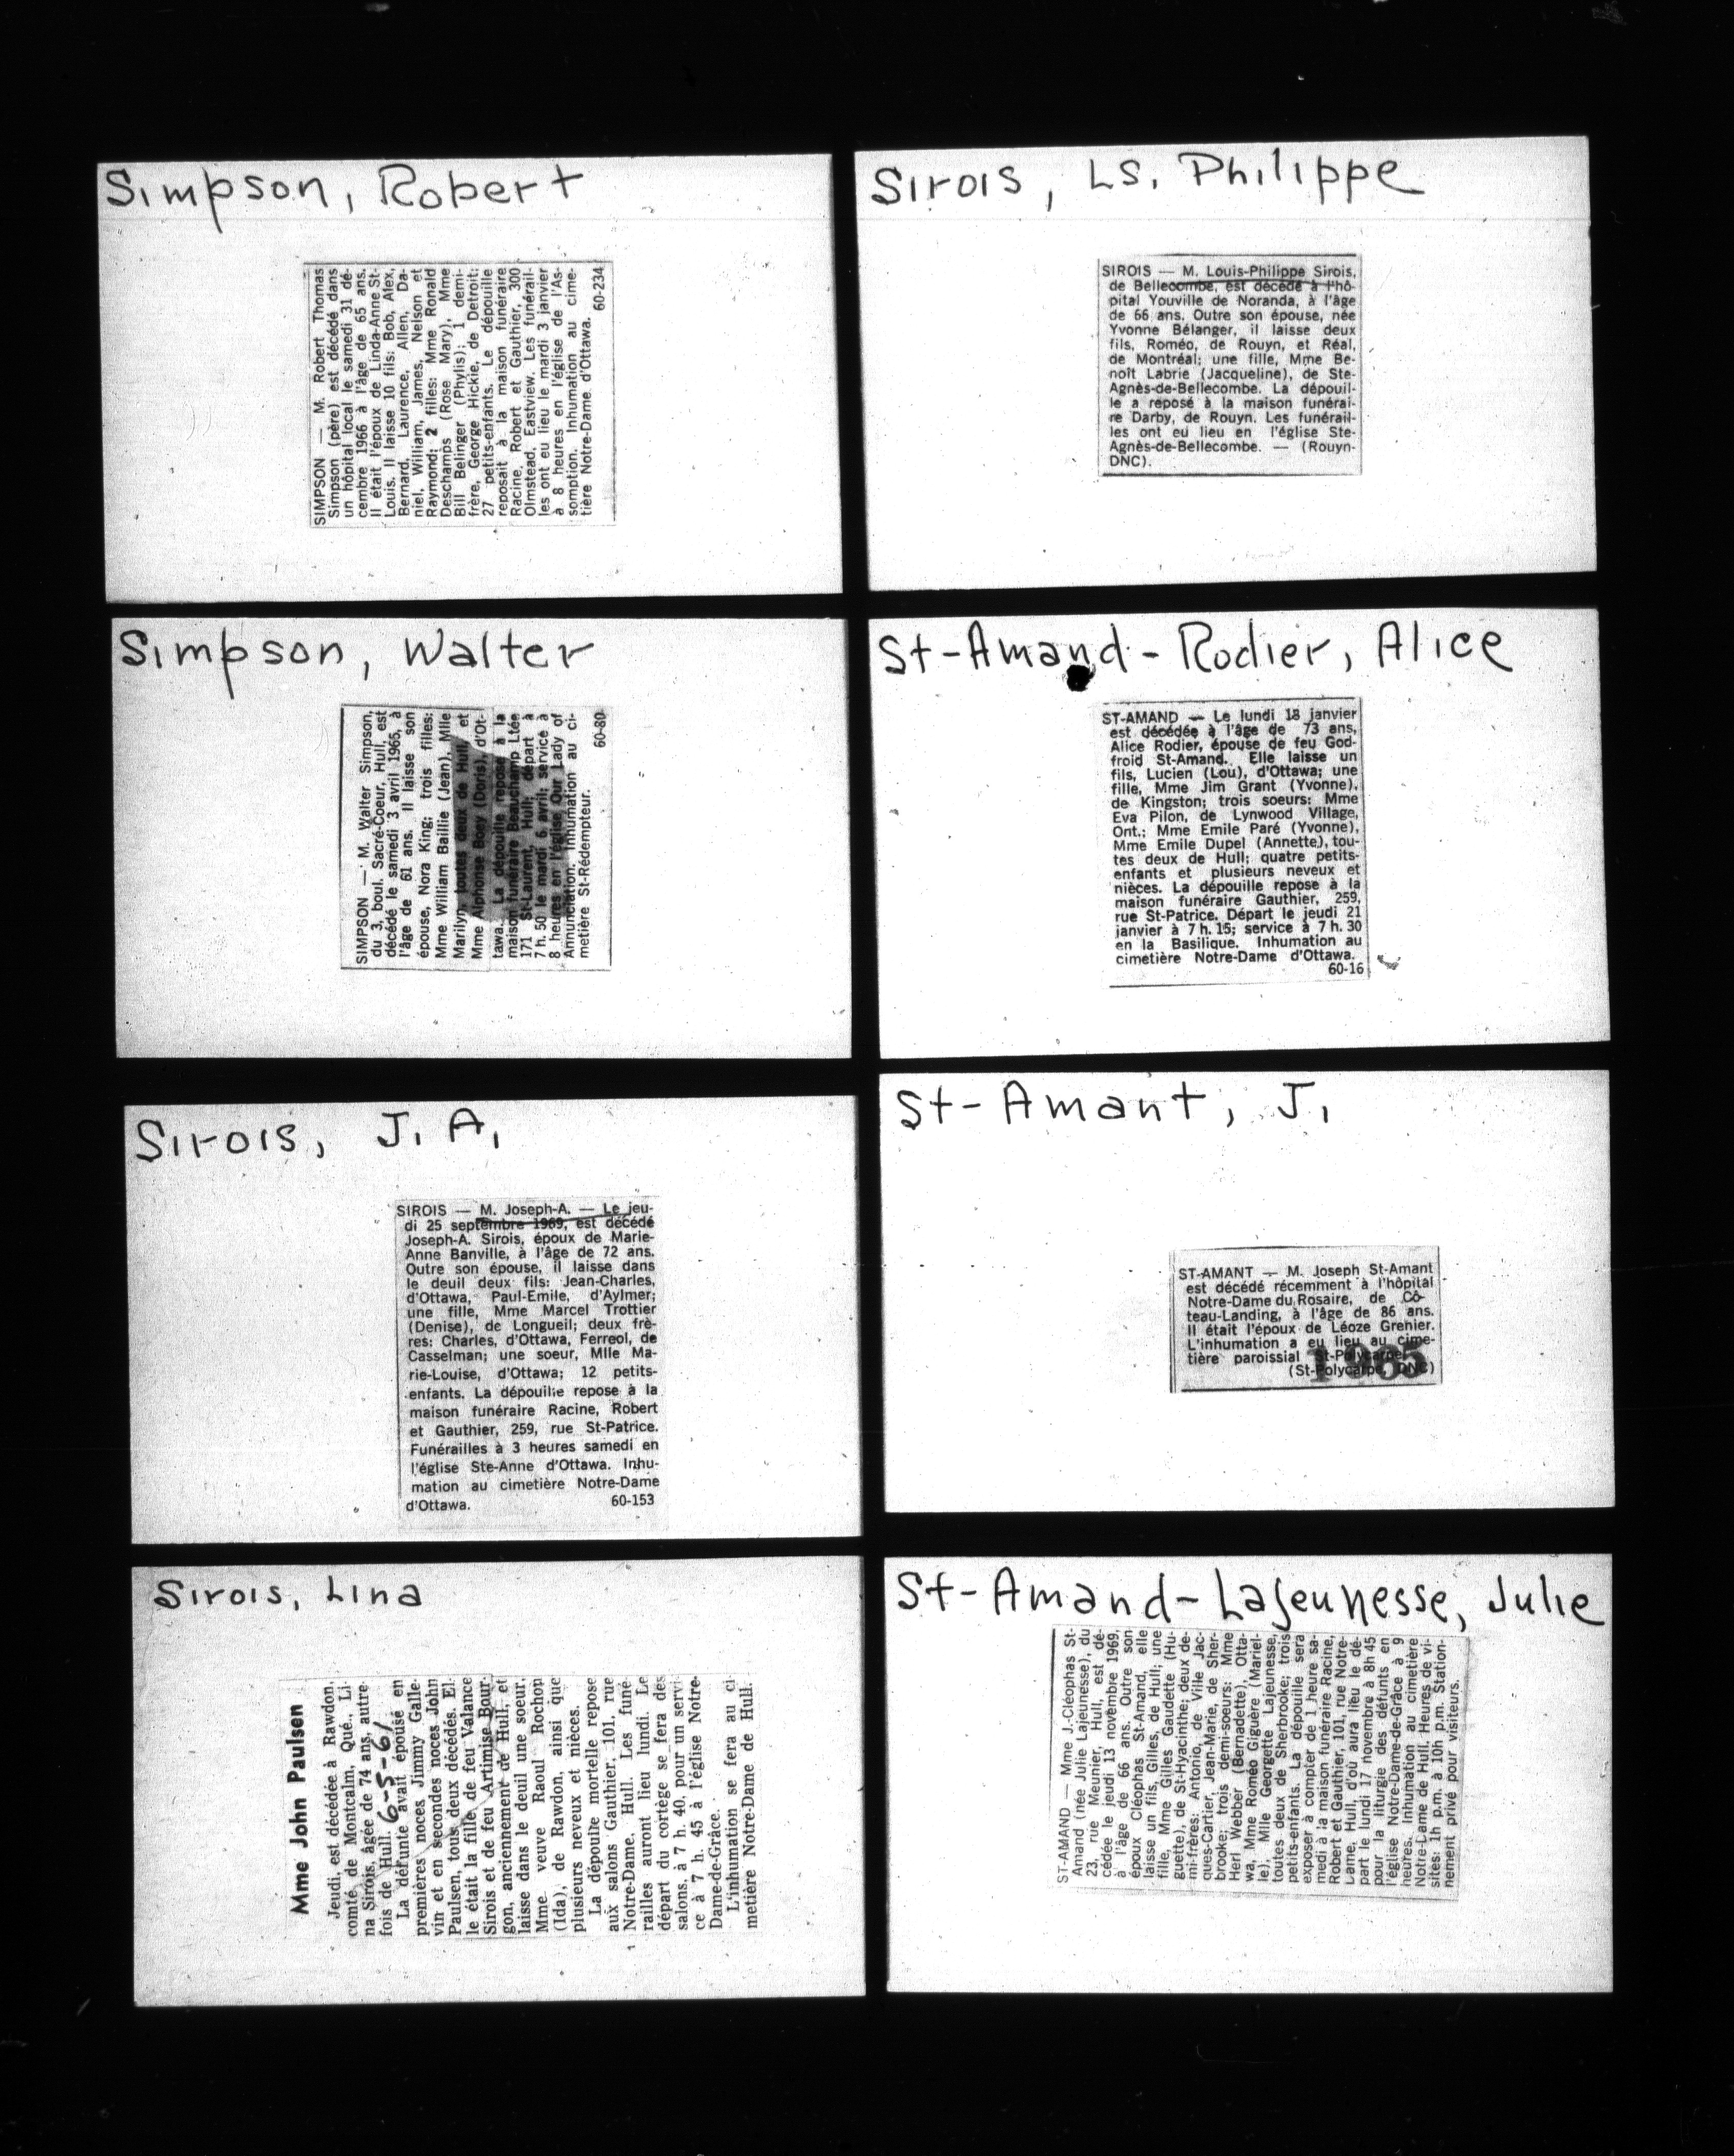 Simpson, Robert
SIMPSON — M. Robert Thomas
Simpson (père) est décédé dans
un hôpital local le samedi 31 dé-
cembre 1966 à l'âge de 65 ans.
Il était l'époux de Linda-Anne St-
Louis. Il laisse 10 fils: Bob, Alex,
Bernard, Laurence, Allen, Da-
niel, William, James, Nelson et
Raymond; 2 filles: Mme Ronald
Deschamps (Rose Mary), Mme
Bill Belinger (Phylis); 1 demi-
frère, George Hickie, de Detroit;
27 petits-enfants. Le dépouille
reposait à la maison funéraire
Racine, Robert et Gauthier, 300
Olmstead, Eastview. Les funérail-
les ont eu lieu le mardi 3 janvier
à 8 heures en l'église de l'As-
somption. Inhumation au cime-
tière Notre-Dame d'Ottawa.
60-234
Simpson, Walter
SIMPSON — M. Walter Simpson,
du 3, boul. Sacré-Coeur, Hull, est
décédé le samedi 3 avril 1965, à
l'âge de 61 ans. Il laisse son
épouse, Nora King; trois filles:
Mme William Baillie (Jean), Mlle
Marilyn, toutes deux de Hull, et
Mme Alphonse Boey (Doris), d'Ot-
tawa. La dépouille repose à la
maison funéraire Beauchamp Ltée
171 St-Laurent, Hull; départ à
7 h. 50 le mardi 6 avril; service à
8 heures en l'église Our Lady of
Annunciation. Inhumation au ci-
metière St-Rédempteur.
60-80
Sirois, J. A.
SIROIS — M. Joseph-A. — Le jeu-
di 25 septembre 1969, est décédé
Joseph-A. Sirois, époux de Marie-
Anne Banville, à l'âge de 72 ans.
Outre son épouse, il laisse dans
le deuil deux fils: Jean-Charles,
d'Ottawa, Paul-Emile, d'Aylmer;
une fille, Mme Marcel Trottier
(Denise), de Longueil; deux frè-
res: Charles, d'Ottawa, Ferreol, de
Casselman; une soeur, Mlle Ma-
rie-Louise, d'Ottawa; 12 petits-
enfants. La dépouille repose à la
maison funéraire Racine, Robert
et Gauthier, 259, rue St-Patrice.
Funérailles à 3 heures samedi en
l'église Ste-Anne d'Ottawa. Inhu-
mation au cimetière Notre-Dame
d'Ottawa. 60-153
Sirois, Lina
Mme John Paulsen
Jeudi, est décédée à Rawdon,
comté de Montcalm, Qué., Li-
na Sirois, âgée de 74 ans, autre-
fois de Hull. 6-5-61
La défunte avait épousé en
premières noces Jimmy Galle-
vin et en secondes noces John
Paulsen, tous deux décédés. El-
le était la fille de feu Valance
Sirois et de feu Artimise Bour-
gon, anciennement de Hull, et
laisse dans le deuil une soeur,
Mme veuve Raoul Rochon
(Ida), de Rawdon, ainsi que
plusieurs neveux et nièces.
La dépouille mortelle repose
aux salons Gauthier, 101, rue
Notre-Dame, Hull. Les funé-
railles auront lieu lundi. Le
départ du cortège se fera des
salons, à 7 h. 40, pour un servi-
ce à 7 h. 45 à l'église Notre-
Dame-de-Grâce.
L'inhumation se fera au ci-
metière Notre-Dame de Hull.
Sirois, Ls. Philippe
SIROIS — M. Louis-Philippe Sirois,
de Bellecombe, est décédé à l'hô-
pital Youville de Noranda, à l'âge
de 66 ans. Outre son épouse, née
Yvonne Bélanger, il laisse deux
fils, Roméo, de Rouyn, et Réal,
de Montréal; une fille, Mme Be-
noît Labrie (Jacqueline), de Ste-
Agnès-de-Bellecombe. La dépouil-
le a reposé à la maison funérai-
re Darby, de Rouyn. Les funérail-
les ont eu lieu en l'église Ste-
Agnès-de-Bellecombe. — (Rouyn-
DNC).
St-Amand-Rodier, Alice
ST-AMAND — Le lundi 18 janvier
est décédée à l'âge de 73 ans,
Alice Rodier, épouse de feu God-
froid St-Amand. Elle laisse un
fils, Lucien (Lou), d'Ottawa; une
fille, Mme Jim Grant (Yvonne),
de Kingston; trois soeurs: Mme
Eva Pilon, de Lynwood Village,
Ont.; Mme Emile Paré (Yvonne),
Mme Emile Dupel (Annette), tou-
tes deux de Hull; quatre petits-
enfants et plusieurs neveux et
nièces. La dépouille repose à la
maison funéraire Gauthier, 259,
rue St-Patrice. Départ le jeudi 21
janvier à 7 h. 15; service à 7 h. 30
en la Basilique. Inhumation au
cimetière Notre-Dame d'Ottawa.
60-16
St-Amant, J.
ST-AMANT — M. Joseph St-Amant
est décédé récemment à l'hôpital
Notre-Dame du Rosaire, de Cô-
teau-Landing, à l'âge de 86 ans.
Il était l'époux de Léoze Grenier.
L'inhumation a eu lieu au cime-
tière paroissial St-Polycarpe.
(St-Polycarpe, DNC)
1965
St-Amand-Lajeunesse, Julie
ST-AMAND — Mme J.-Cléophas St-
Amand (née Julie Lajeunesse), du
23, rue Meunier, Hull, est dé-
cédée le jeudi 13 novembre 1969,
à l'âge de 66 ans. Outre son
époux Cléophas St-Amand, elle
laisse un fils, Gilles, de Hull; une
fille, Mme Gilles Gaudette (Hu-
guette), de St-Hyacinthe; deux de-
mi-frères: Antonio, de Ville Jac-
ques-Cartier, Jean-Marie, de Sher-
brooke; trois demi-soeurs: Mme
Herl Webber (Bernadette), Otta-
wa, Mme Roméo Giguère (Mariel-
le), Mlle Georgette Lajeunesse,
toutes deux de Sherbrooke; trois
petits-enfants. La dépouille sera
exposer à compter de 1 heure sa-
medi à la maison funéraire Racine,
Robert et Gauthier, 101, rue Notre-
Dame, Hull, d'où aura lieu le dé-
part le lundi 17 novembre à 8h 45
pour la liturgie des défunts en
l'église Notre-Dame-de-Grâce à 9
heures. Inhumation au cimetière
Notre-Dame de Hull. Heures de vi-
sites: 1h p.m. à 10h p.m. Station-
nement privé pour visiteurs.